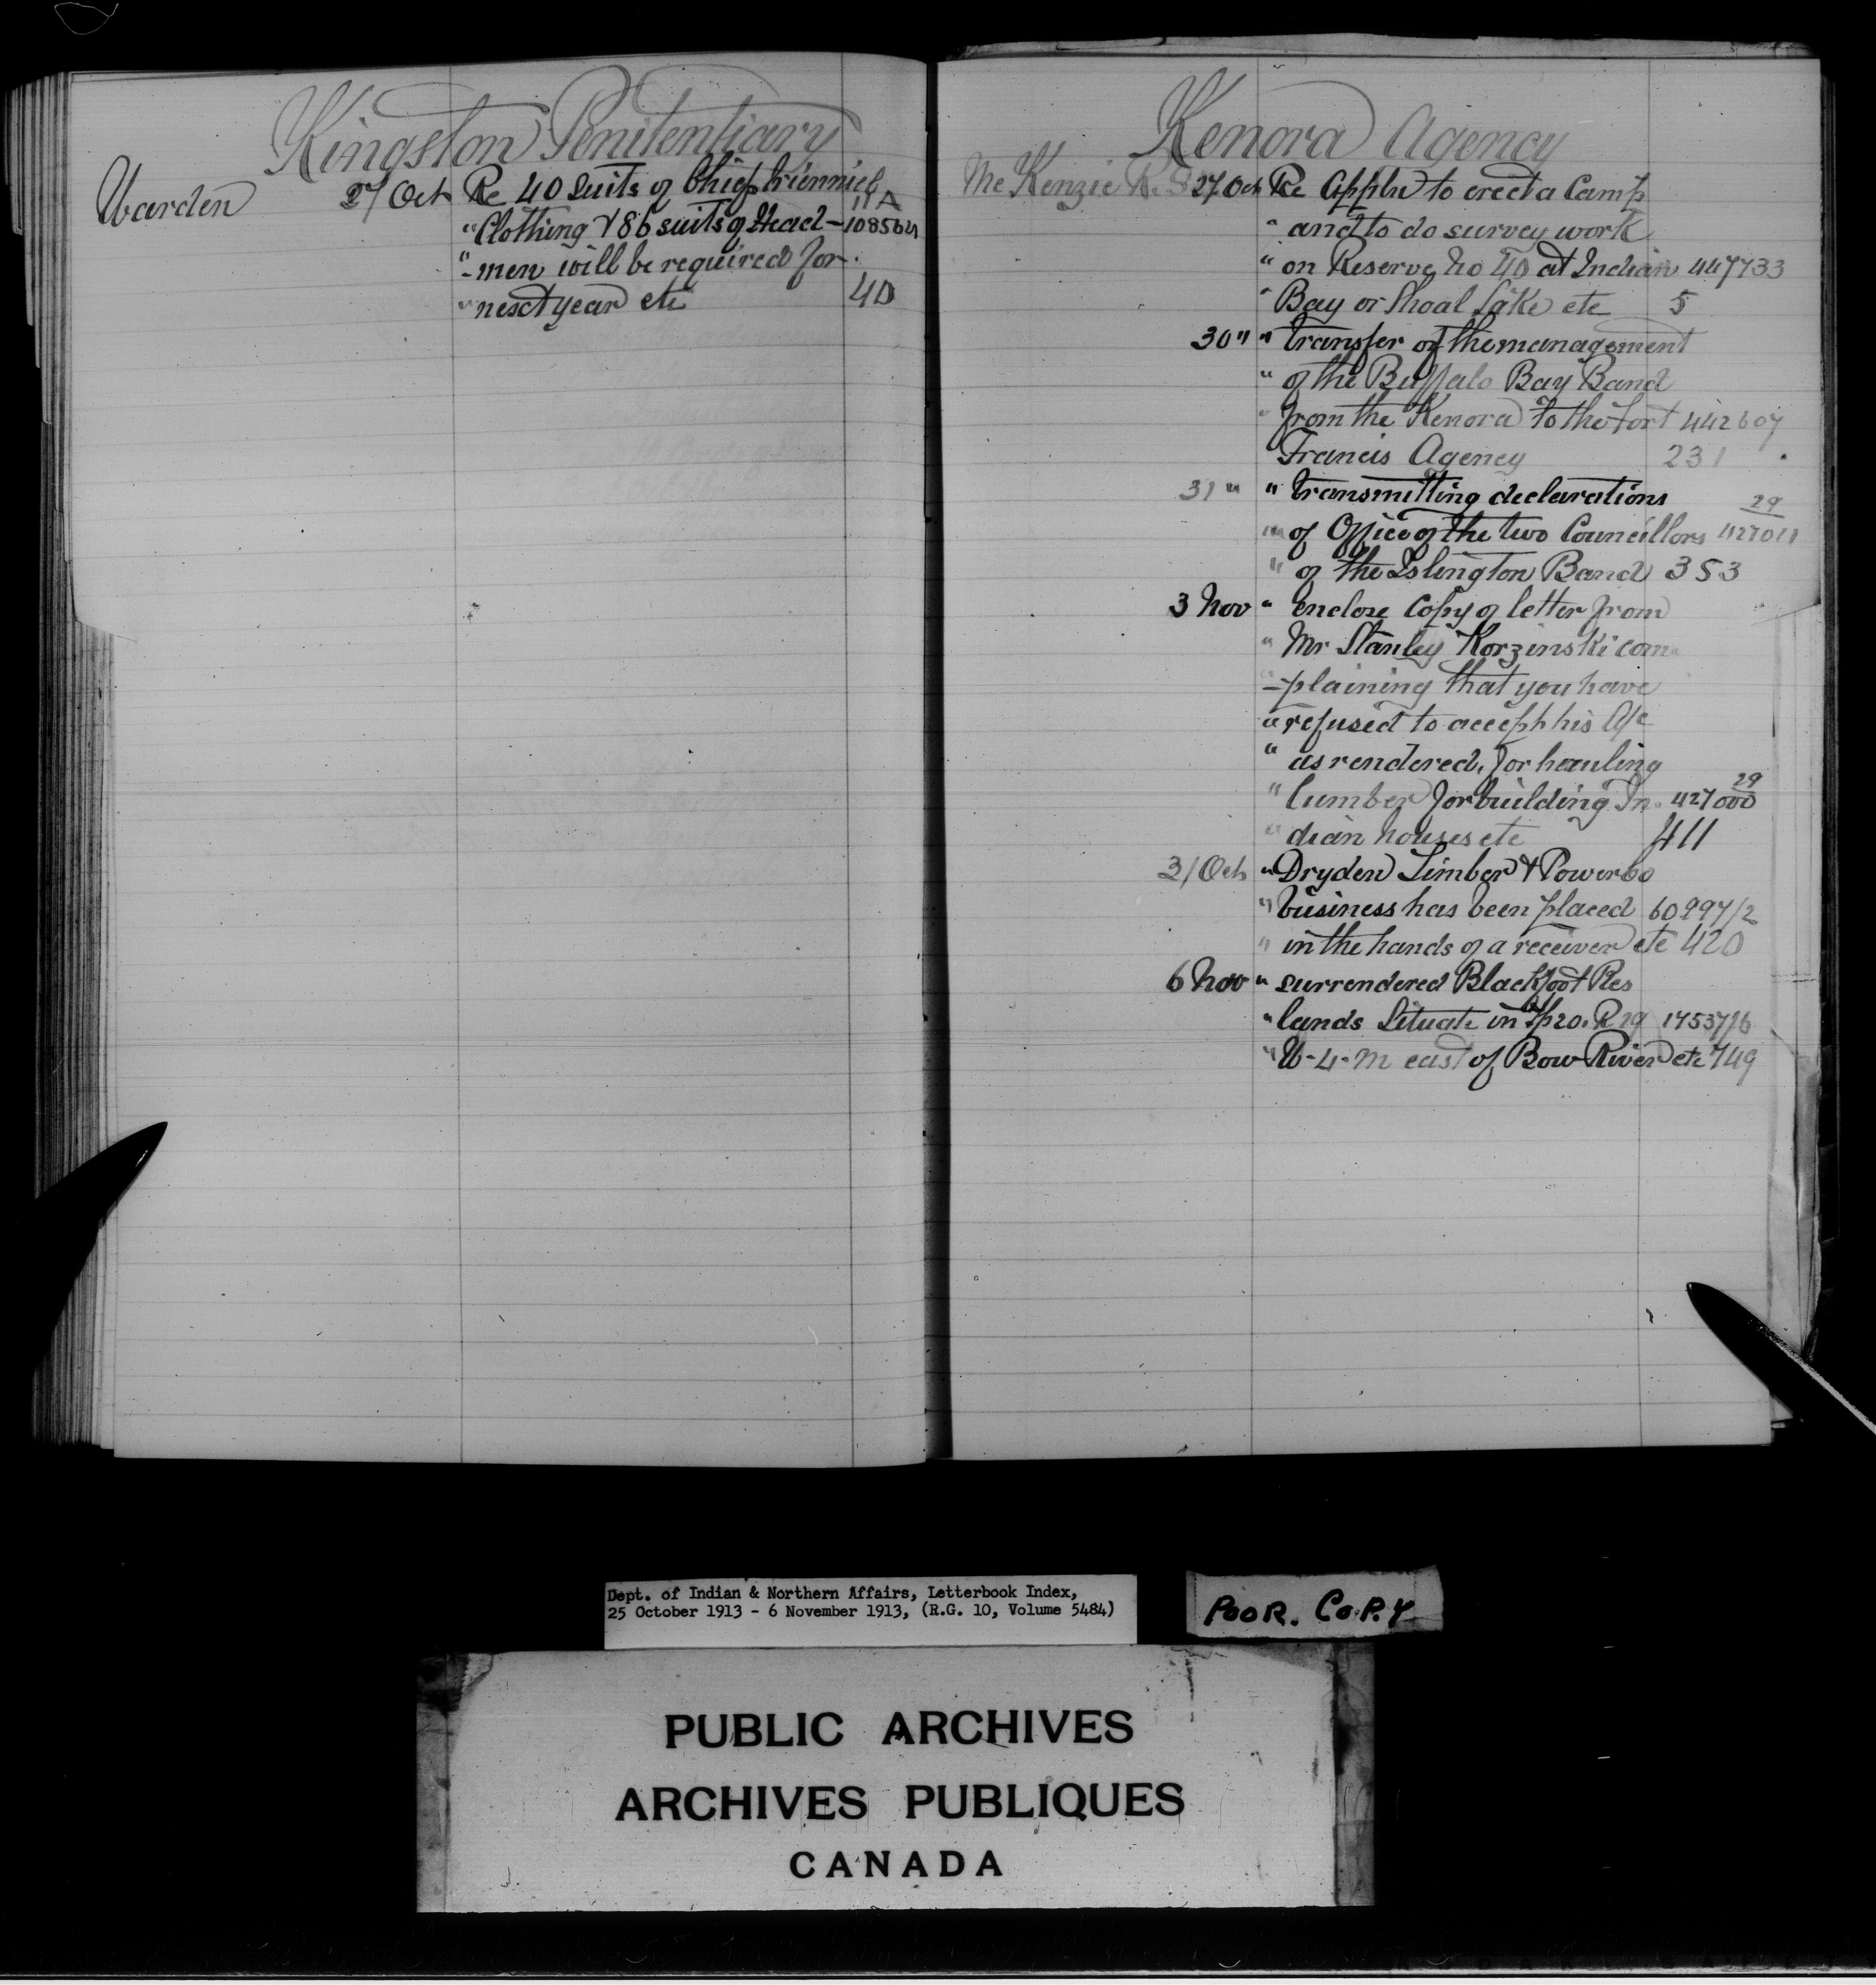 Kingston Penitentiary
Warden 27 Oct Re 40 suits of Chief triennial
" Clothing & 86 suits of Head- 108564
11A
" -men will be required for
" next year etc 40
Kenora Agency
McKenzie R.S 27 Oct Re Appln to erect a Camp
" and to do survey work
" on Reserve No 40 at Indian 447733
" Bay or Shoal Lake etc 5
30 " " transfer of the management
" of the Buffalo Bay Band
" from the Kenora to the Fort 442607
Francis Agency 231
31 " " transmitting declarations
29
" of Office of the two Councillors 427011
" of the Islington Band 353
3 Nov " enclose Copy of letter from
" Mr Stanley Korzinski com
" -plaining that you have
" refused to accept his A/c
" as rendered, for hauling
29
" lumber for building In- 427000
" dian houses etc 411
31 Oct " Dryden Timber & Power Co
" business has been placed 60997/2
" in the hands of a receiver etc 420
6 Nov " surrendered Blackfoot Res
" lands situate in Tp 20. R 19 175371/6
" W-4-M east of Bow River etc 749
Dept. of Indian & Northern Affairs, Letterbook Index,
25 October 1913 - 6 November 1913, (R.G. 10, Volume 5484)
POOR. COPY
PUBLIC ARCHIVES
ARCHIVES PUBLIQUES
CANADA